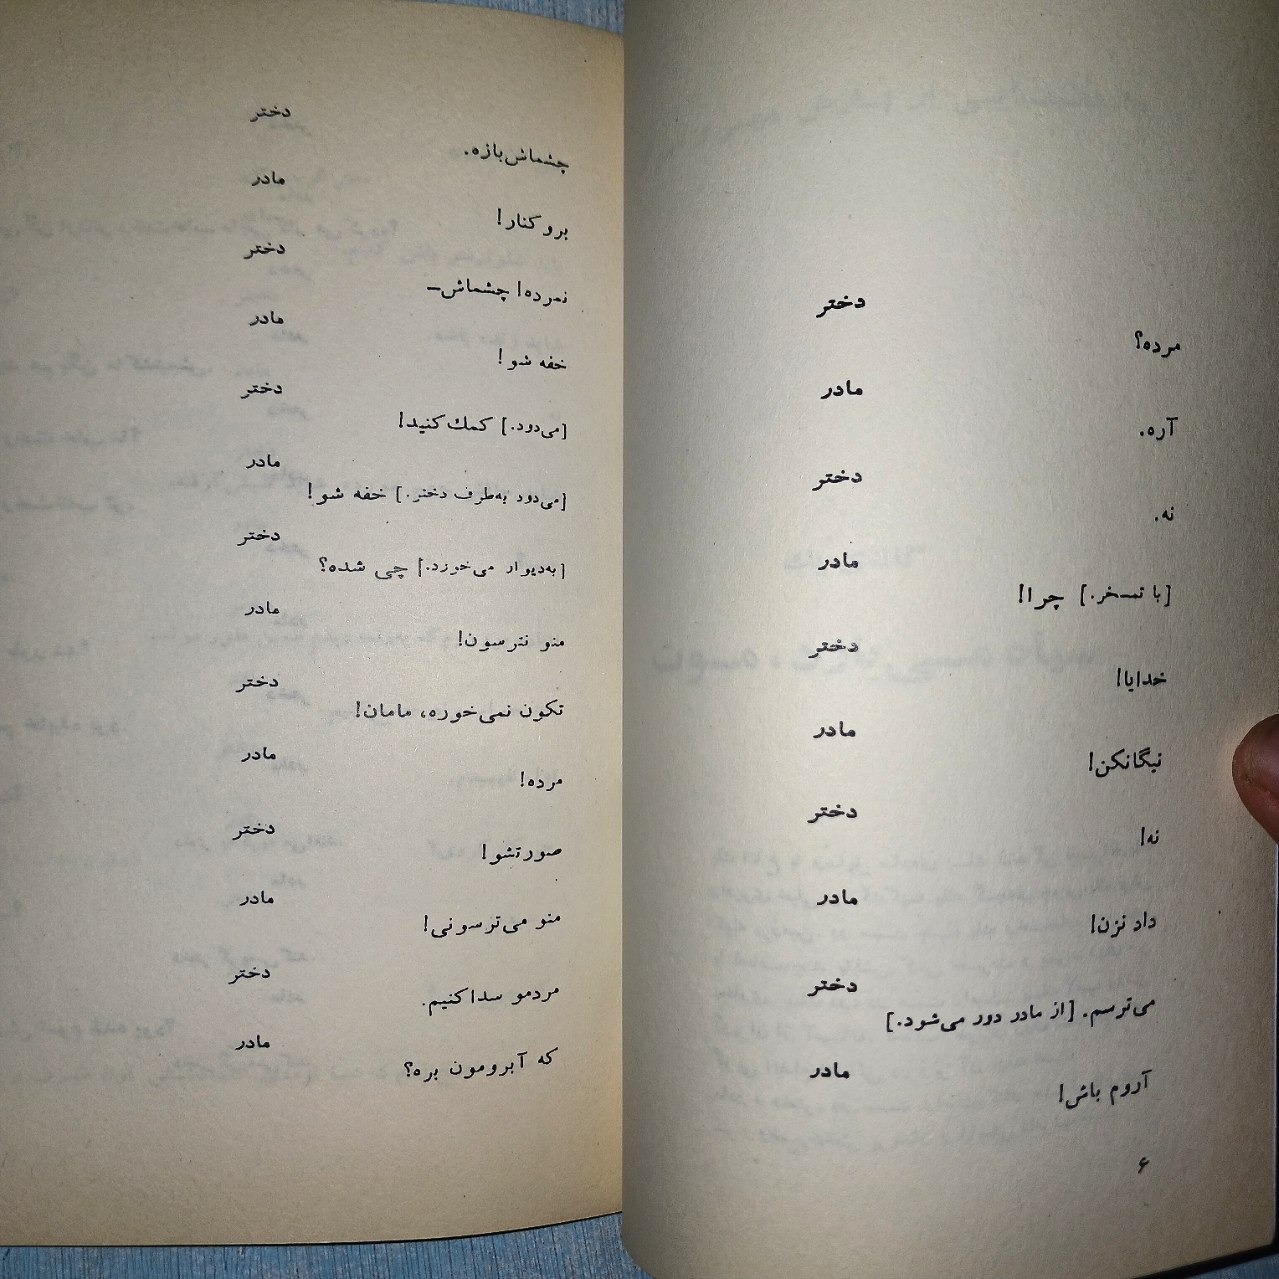 دختر
مرده؟
مادر
آره.
دختر
نه.
مادر
[با تمسخر.] چرا!
دختر
خدایا!
مادر
نیگانکن!
دختر
نه!
مادر
داد نزن!
دختر
می‌ترسم. [از مادر دور می‌شود.]
مادر
آروم باش!
۶
دختر
چشماش‌بازه.
مادر
برو کنار!
دختر
نمرده! چشماش–
مادر
خفه شو!
دختر
[می‌دود.] کمك کنید!
مادر
[می‌دود به‌طرف دختر.] خفه شو!
دختر
[به‌دیوار می‌خورد.] چی شده؟
مادر
منو نترسون!
دختر
تکون نمی‌خوره، مامان!
مادر
مرده!
دختر
صورتشو!
مادر
منو می‌ترسونی!
دختر
مردمو سداکنیم.
مادر
که آبرومون بره؟